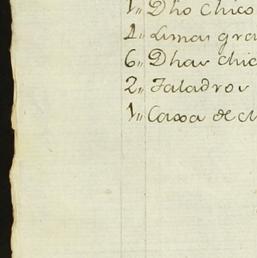 1,, Dho chico
1,, Limas gra
6,, Dhas chic
2,, Taladros
1,, Caxa de